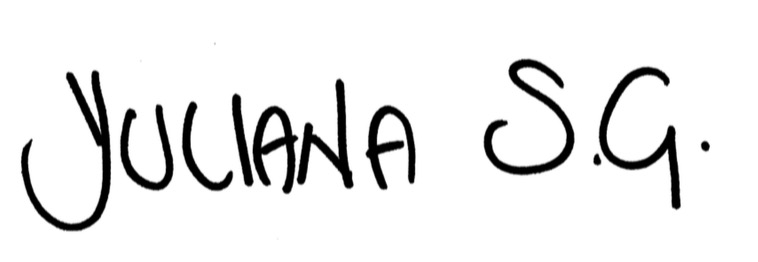 YULIANA S.G.